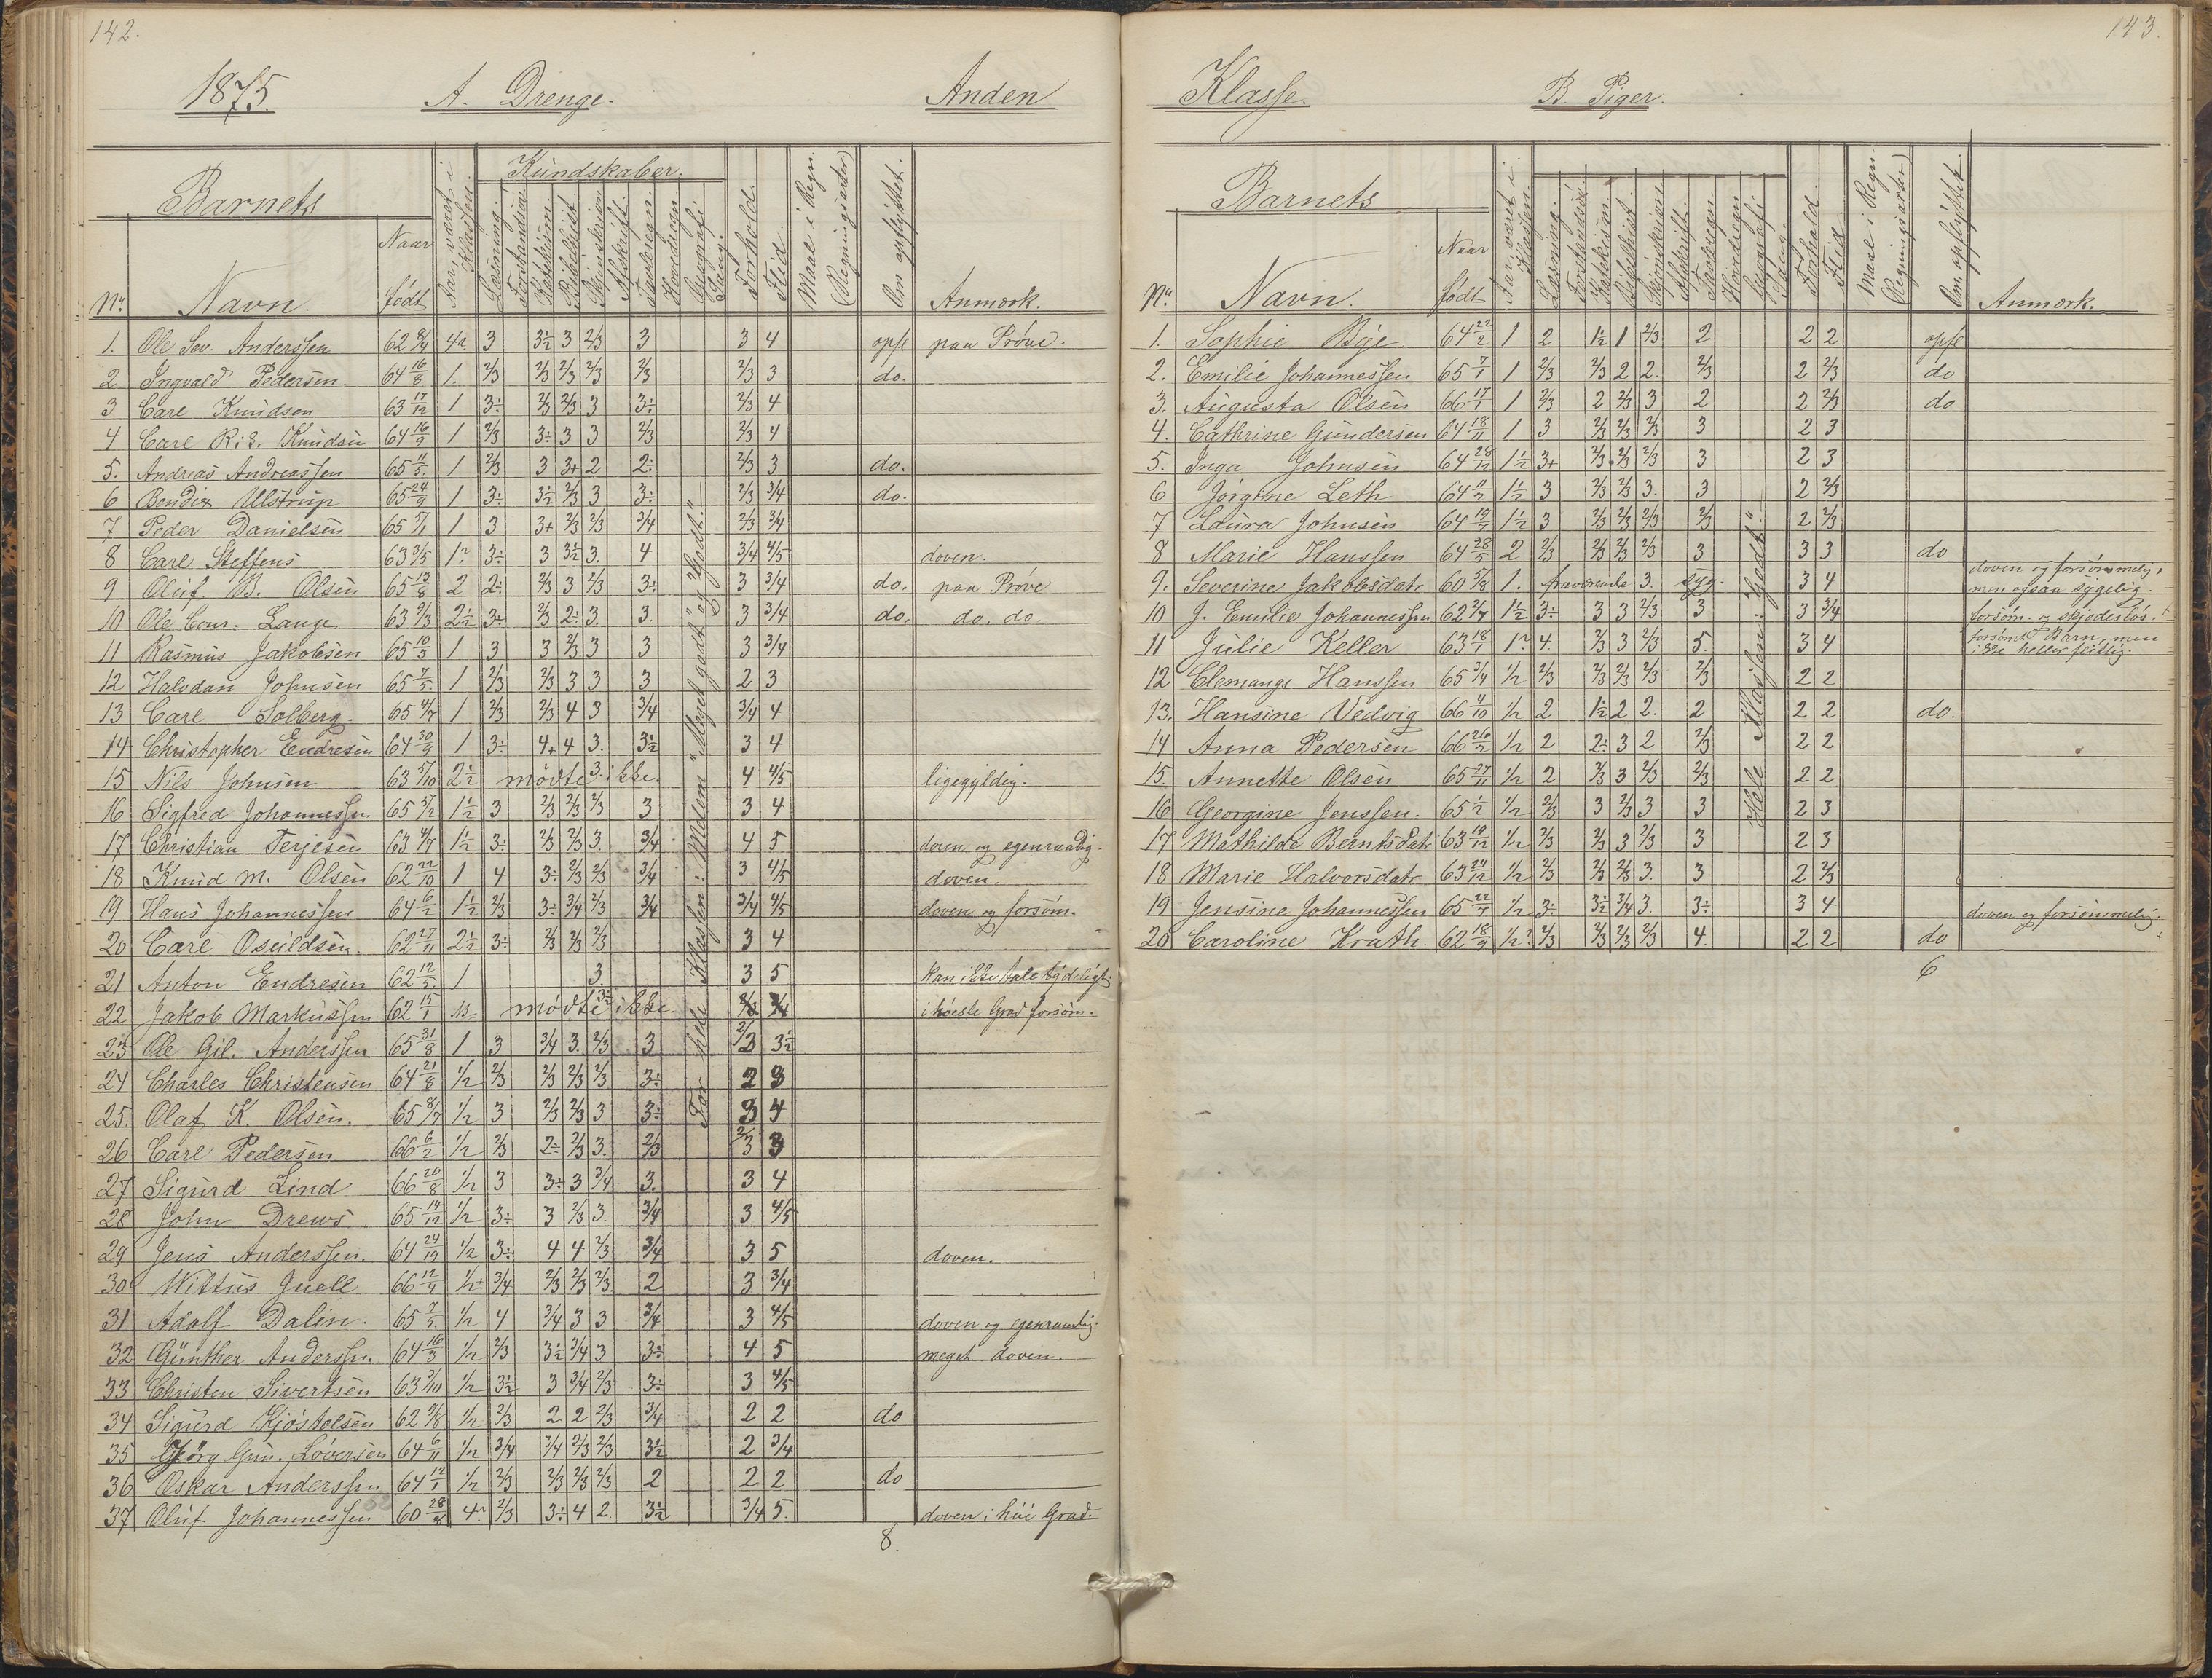 142.
1875. A. Drenge. Anden
Barnets Aar været i Klassen. Kundskaber. Forhold. Flid. Maxe i Regn. (Regningsarter) Om opflyttet.
No. Navn. Naar født Læsning. Forstandsøv. Katekism. Bibelhist. Skjønskrivn. Afskrift. Tavleregn. Hovedregn. Geografi Sang. Anmærk.
1. Ole Sev. Anderssen 62 8/4 4a. 3 3½ 3 2/3 3 3 4 opfl paa Prøve.
2 Ingvald Pedersen. 64 16/8 1. 2/3 2/3 2/3 2/3 2/3 2/3 3 do.
3 Carl Knudsen 63 17/12 1 3÷ 2/3 2/3 3 3÷ 2/3 4
4 Carl Knudsen 64 16/9 1 2/3 3÷ 3 3 2/3 2/3 4
5. Andreas Andreassen 65 11/5. 1 2/3 3 3+ 2 2÷ 2/3 3 do.
6 Bendix Ulstrup 65 24/9 1 3÷ 3½ 2/3 3 3÷ 2/3 3/4 do.
7 Peder Danielsen 65 5/11 1 3 3+ 2/3 2/3 3/4 2/3 3/4
8 Carl Steffens 63 3/5 1? 3÷ 3 3½ 3. 4 3/4 4/5 doven.
9 Oluf B. Olsen 65 12/8 2 2÷ 2/3 3 2/3 3÷ 3 3/4 do. paa Prøve
10 Ole Conr. Lange 63 9/3 2½ 3÷ 2/3 2÷ 3. 3. 3 3/4 do. do. do.
11 Rasmus Jakobsen 65 10/3 1 3 3 2/3 3 3 3 3/4
12 Halvdan Johnsen 65 7/5. 1 2/3 2/3 3 3 3 2 3
13 Carl Solberg. 65 4/7 1 2/3 2/3 4 3 3/4 3/4 4
14 Christopher Endresen 64 30/9 1 3÷ 4+ 4 3. 3½ 3 4
15 Nils Johnsen 63 5/10 2½ mødte 3. ikke. 4 4/5 ligegyldig.
16 Sigfred Johannessen 65 5/2 1½ 3 2/3 2/3 2/3 3 3 4
17 Christian Terjesen 63 4/7 1½ 3÷ 2/3 2/3 3. 3/4 4 5 doven og egenraadig.
18 Knud M. Olsen 62 22/10 1 4 3÷ 2/3 2/3 3/4 3 4/5 doven.
19 Hans Johannessen 64 6/2 1½ 2/3 3÷ 3/4 2/3 3/4 3/4 4/5 doven og forsøm.
20 Carl Oseildsen. 62 27/11 2½ 3÷ 2/3 2/3 2/3 3 4
21 Anton Endresen 62 12/5. 1 3 3 5 kan ikke tale tydeligt.
22 Jakob Markussen 62 15/1 mødte 3½ ikke. i høieste Grad forsøm.
23 Ole Gil. Anderssen 65 31/8 1 3 3/4 3. 2/3 3 2/3 3½
24 Charles Christensen 64 21/8 1/2 2/3 2/3 2/3 2/3 3÷ 2 3
25. Olaf K. Olsen. 65 8/7 1/2 3 2/3 2/3 3 3÷ 3 4
26 Carl Pedersen 66 6/2 1/2 2/3 2÷ 2/3 3. 2/3 2/3 3
27 Sigurd Lind 66 20/8 1/2 3 3÷ 3 3/4 3. 3 4
28 John Drews 65 14/12 1/2 3÷ 3 2/3 3. 3/4 3 4/5
29 Jens Anderssen. 64 24/19 1/2 3÷ 4 4 2/3 3/4 3 5 doven.
30 Wittus Juell 66 12/4 1/2 3/4 2/3 2/3 2/3 2 3 3/4
31 Adolf Dalin. 65 7/5. 1/2 4 3/4 3 3 3/4 3 4/5 doven og egenraadig.
32 Günther Anderssen 64 16/3 1/2 2/3 3½ 3/4 3 3÷ 4 5 meget doven.
33 Christen Sivertsen 63 3/10 1/2 3½ 3 3/4 2/3 3÷ 3 4/5
34 Sigurd Kjøstolsen 62 9/8 1/2 2/3 2 2 2/3 3/4 2 2 do
35 Georg Gun. Løversen 64 6/11 1/2 3/4 3/4 2/3 2/3 3½ 2 3/4
36 Oskar Anderssen 64 12/1 1/2 2/3 2/3 2/3 2/3 2 2 2 do
37 Oluf Johannessen 60 28/8 4? 2/3 3÷ 4 2. 3½ 3/4 5. doven i høi Grad.
For hele Klassen: Meget godt" og "Godt."
8.
143.
Klasse. B. Piger.
Barnets Aar været i Klassen. Forhold. Flid Maxe i Regn. Regningsarter) Om opflyttet.
No. Navn. Naar født Læsning. Forstandsøv. Katekism. Bibelhist. Skjønskrivn. Afskrift. Tavleregn. Hovedregn. Geografi Sang. Anmærk.
1. Sophie Bøe 64 22/2 1 2 1½ 1 2/3 2 2 2 opfl
2. Emilie Johannessen 65 7/1 1 2/3 2/3 2 2. 2/3 2 2/3 do
3. Augusta Olsen 66 17/1 1 2/3 2 2/3 3 2 2 2/3 do
4. Cathrine Gundersen 64 18/11 1 3 2/3 2/3 2/3 3 2 3
5. Inga Johnsen 64 28/12 1½ 3+ 2/3 2/3 2/3 3 2 3
6 Jørgine Leth 64 11/2 1½ 3 2/3 2/3 3. 3 2 2/3
7 Laura Johnsen 64 19/7 1½ 3 2/3 2/3 2/3 2/3 2 2/3
8 Marie Hanssen 64 28/5 2 2/3 2/3 2/3 2/3 3 3 3 do
9. Severine Jakobsdatr 60 5/8 1. fraværende 3. syg. 3 4 doven og forsømmelig,
men ogsaa sygelig.
10 J. Emilie Johannessen 62 2/7 1½ 3÷ 3 3 2/3 3 3 3/4 forsøm. og skjødesløs.
11 Julie Keller 63 18/1 1? 4. 2/3 3 2/3 5. 3 4 forsømt Barn, men
ikke heller flittig.
12 Clemangs Hanssen 65 3/4 1/2 2/3 2/3 2/3 2/3 2/3 2 2
13. Hansine Vedvig 66 11/10 1/2 2 1½ 2 2. 2 2 2 do.
14 Anna Pedersen 66 26/2 1/2 2 2÷ 3 2 2/3 2 2
15. Annette Olsen 65 27/11 1/2 2 2/3 3 2/3 2/3 2 2
16 Georgine Jenssen. 65 1/2 1/2 2/3 3 2/3 3 3 2 3
17 Mathilde Berntsdatr 63 19/12 1/2 2/3 2/3 3 2/3 3 2 3
18 Marie Halvorsdatr 63 24/12 1/2 2/3 2/3 2/3 3. 3 2 2/3
19 Jensine Johannessen 65 22/7 1/2 3÷ 3½ 3/4 3. 3÷ 3 4 doven og forsømmelig.
20 Caroline Krath. 62 18/9 1/2? 2/3 2/3 2/3 2/3 4. 2 2 do
Hele Klassen: "Godt."
6